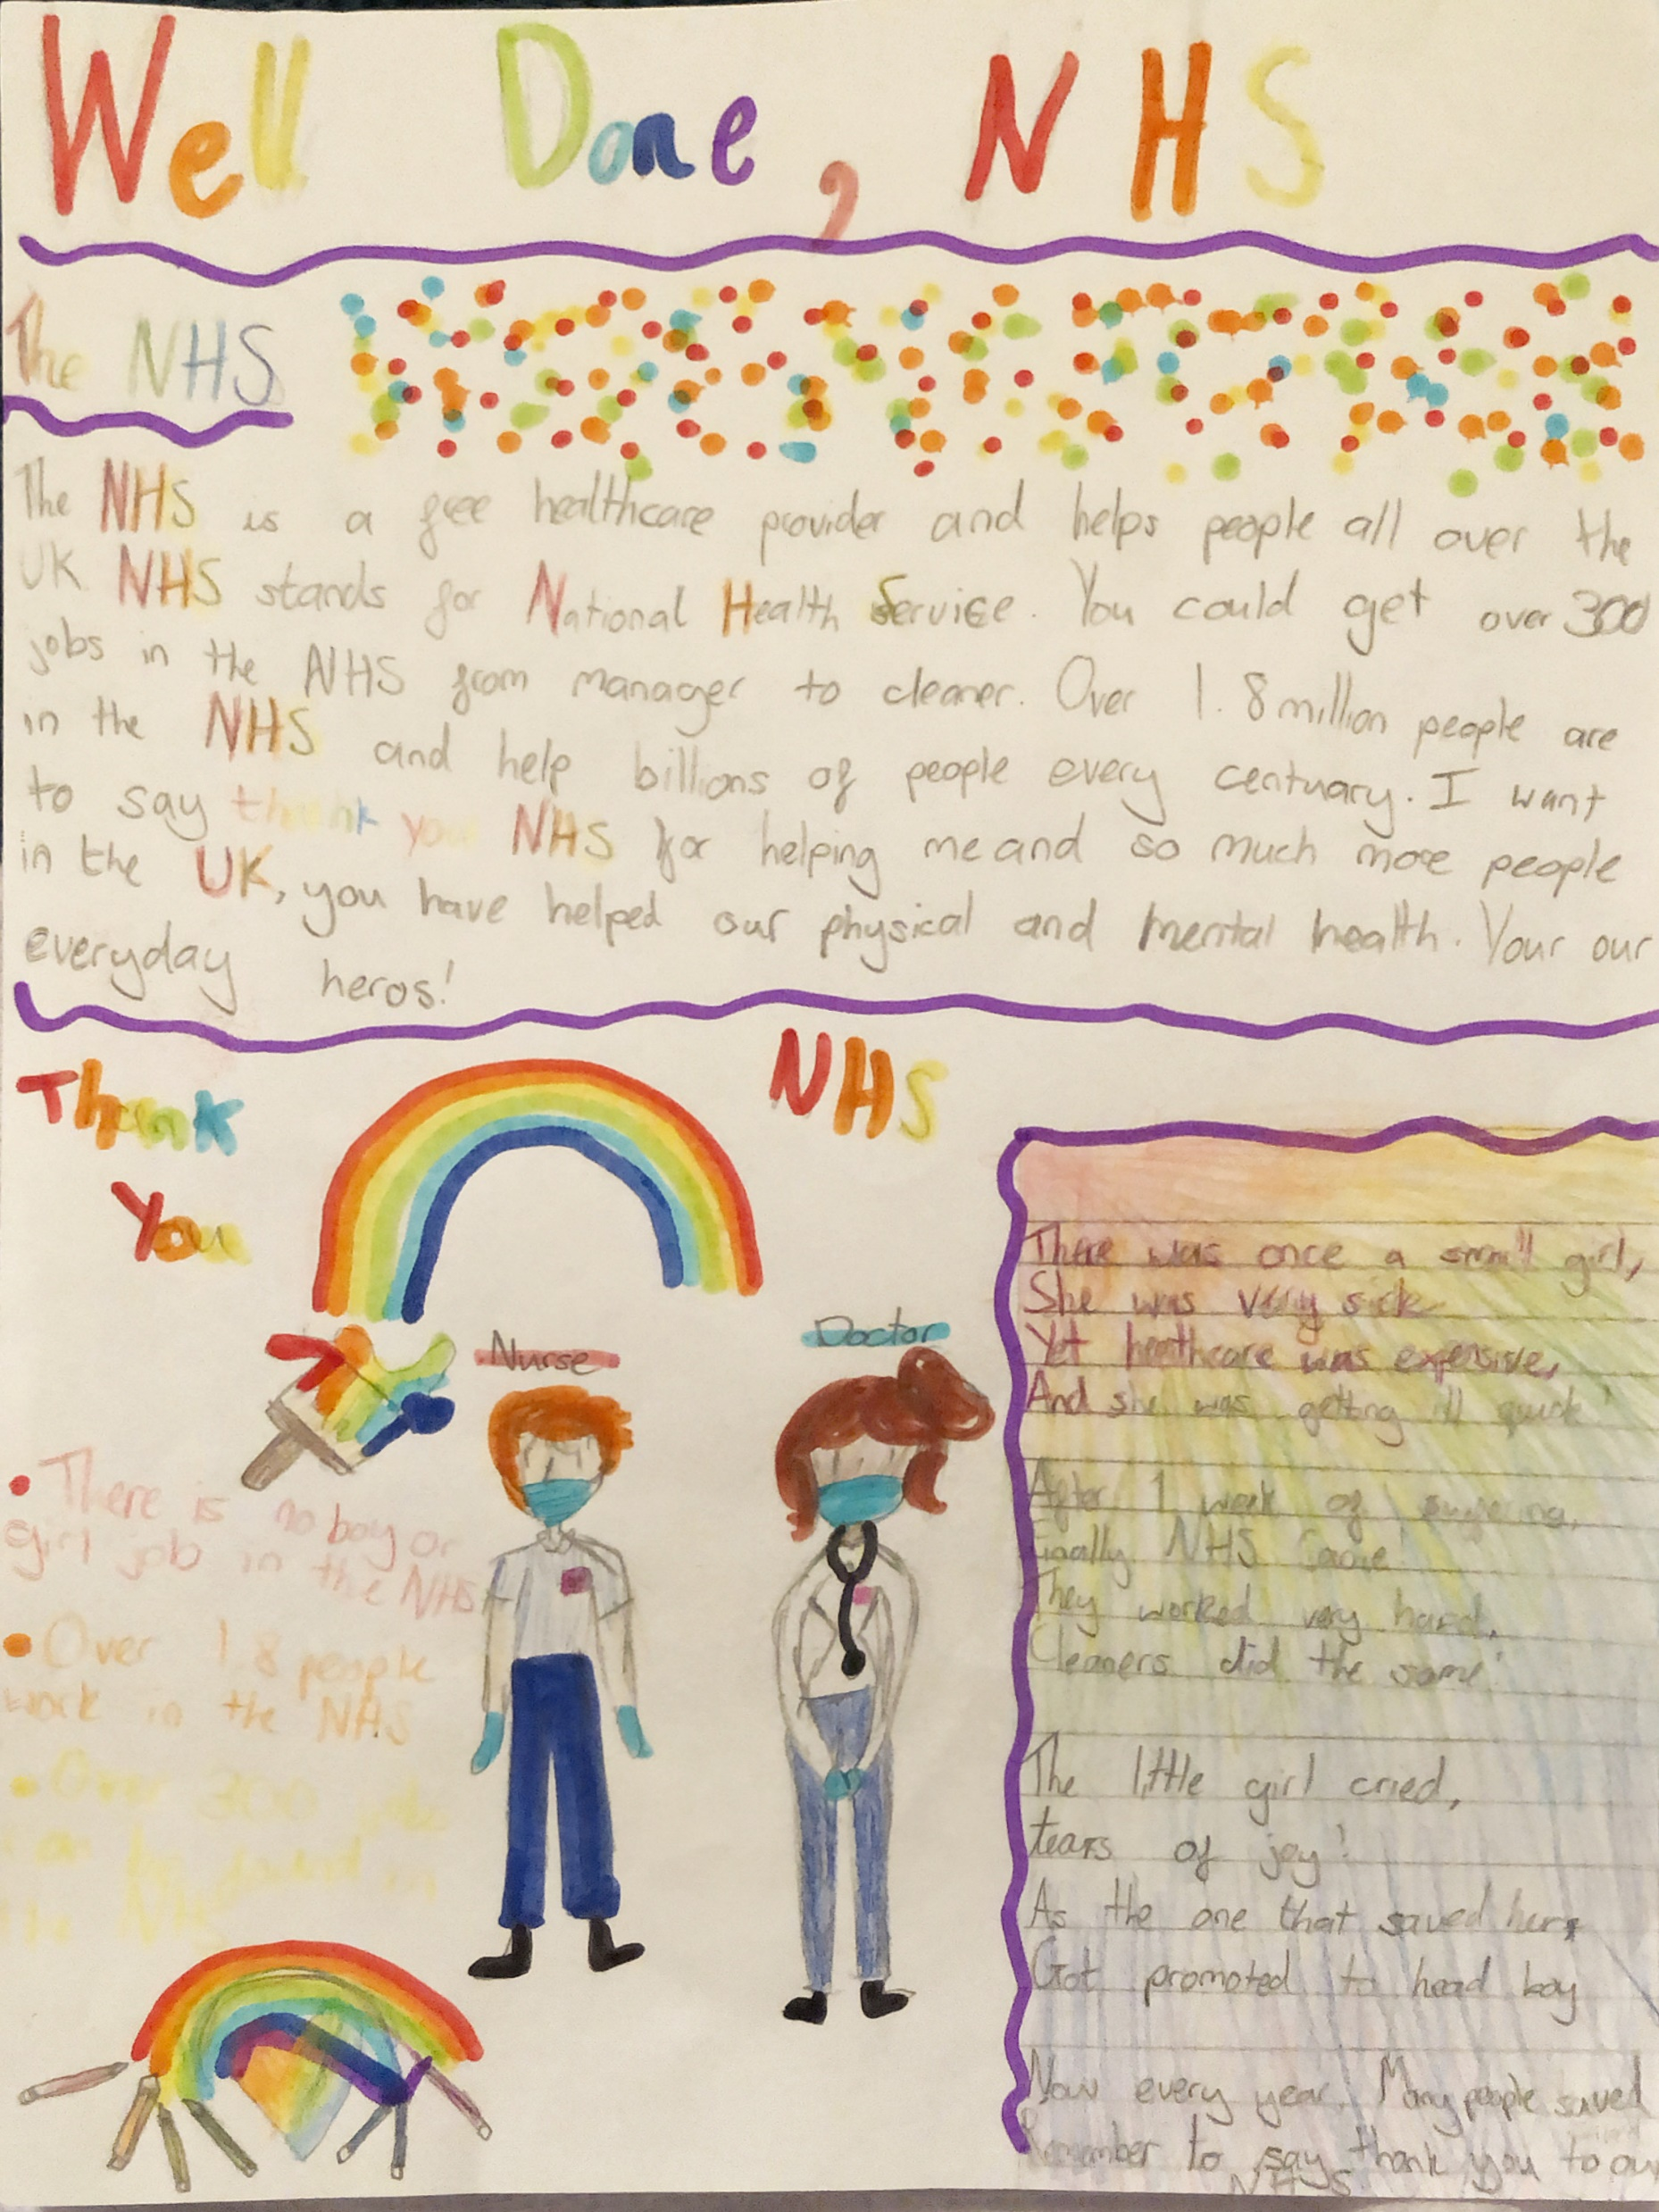 Well Done, NHS
The NHS
The NHS is a free healthcare provider and helps people all over the
UK NHS stands for National Health Service. You could get over 300
jobs in the NHS from manager to cleaner. Over 1.8 million people are
in the NHS and help billions of people every centuary. I want
to say thank you NHS for helping me and so much more people
in the UK, you have helped our physical and mental health. Your our
everyday heros!
Thank
You
NHS
Nurse
Doctor
• There is no boy or
girl job in the NHS
• Over 1.8 people
work in the NHS
• Over 300 jobs
can be in
the NHS
There was once a small girl,
She was very sick
Yet healthcare was expensive,
And she was getting ill quick!
After 1 week of suffering,
Finally NHS came!
They worked very hard,
Cleaners did the same!
The little girl cried,
tears of joy!
As the one that saved her,
Got promoted to head boy
Now every year, Many people saved
Remember to say thank you to our
NHS